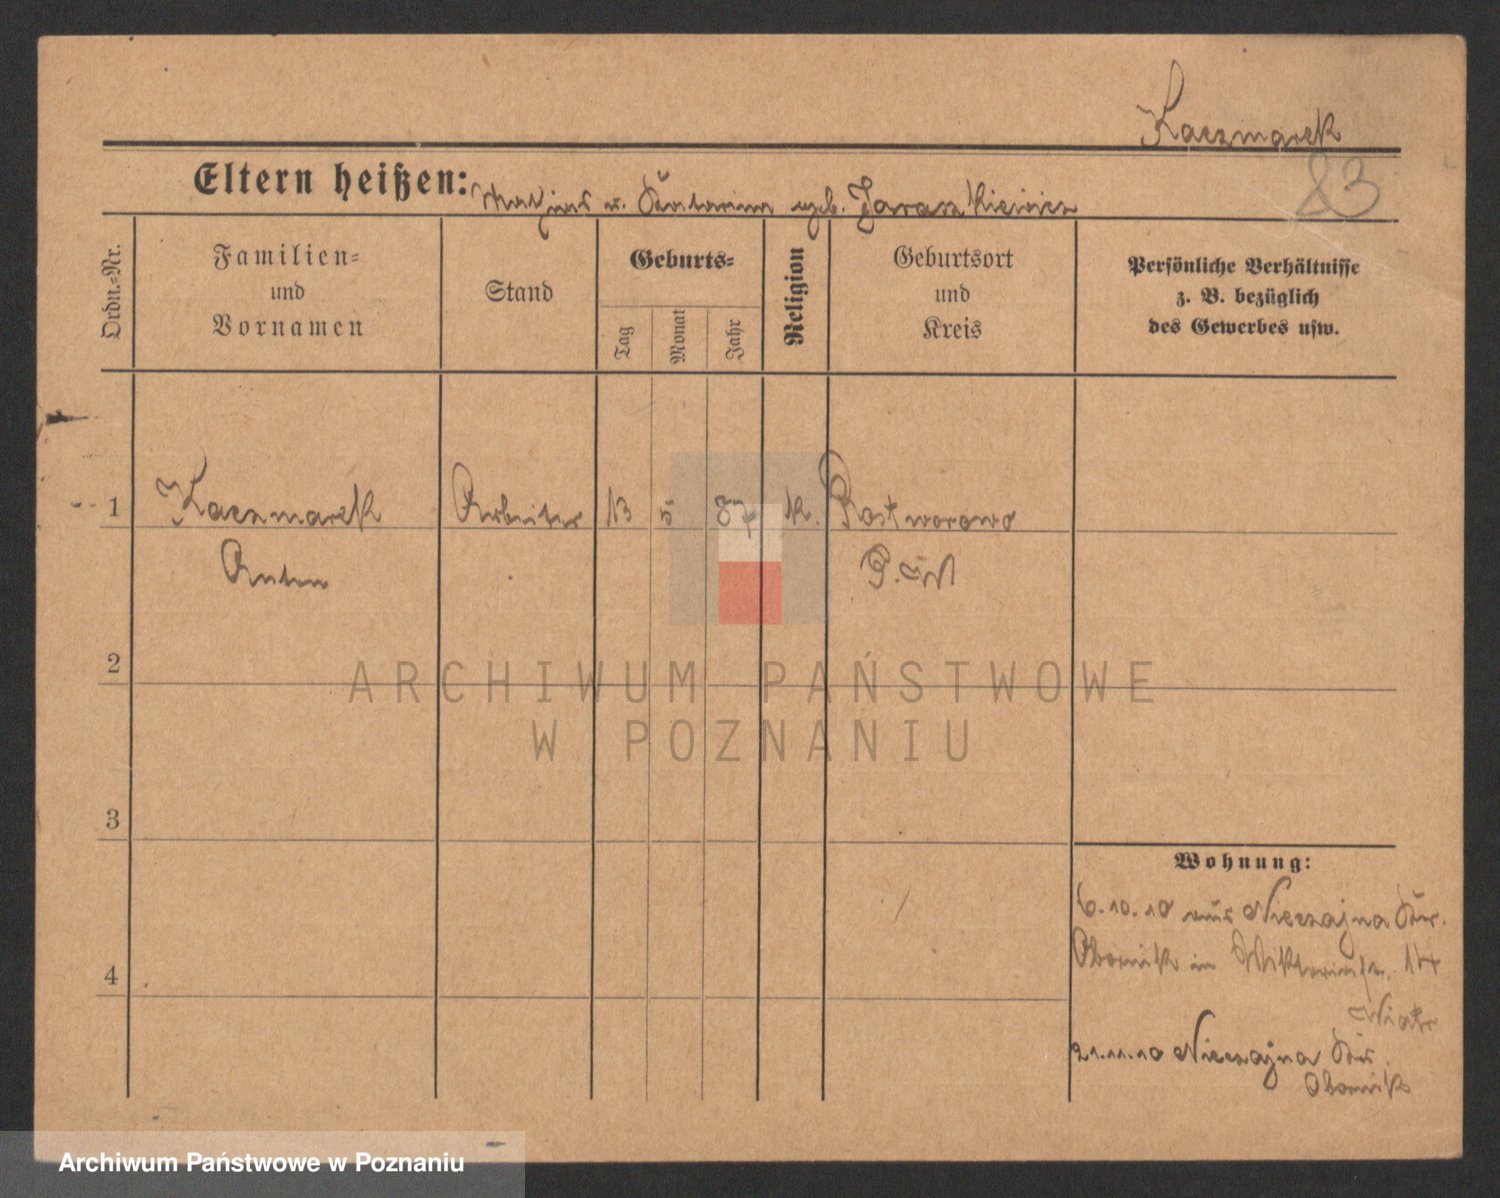 Kaczmarek
83
Eltern heißen: Mathias u. Katarina geb. Jaraszkiewicz
Ordn.-Nr.
Familien-
und
Vornamen
Stand
Geburts-
Tag
Monat
Jahr
Religion
Geburtsort
und
Kreis
Persönliche Verhältnisse
z. B. bezüglich
des Gewerbes usw.
1 Kaczmarek Arbeiter 13 5 87 k. Rostworowo
Anton P. W
2
ARCHIWUM PAŃSTWOWE
W POZNANIU
3
Wohnung:
6.10.10 aus Nieczajna Kr.
Obornik in Viktoriastr. 14
4
Wiatr
21.11.10 Nieczajna Kr.
Obornik
Archiwum Państwowe w Poznaniu